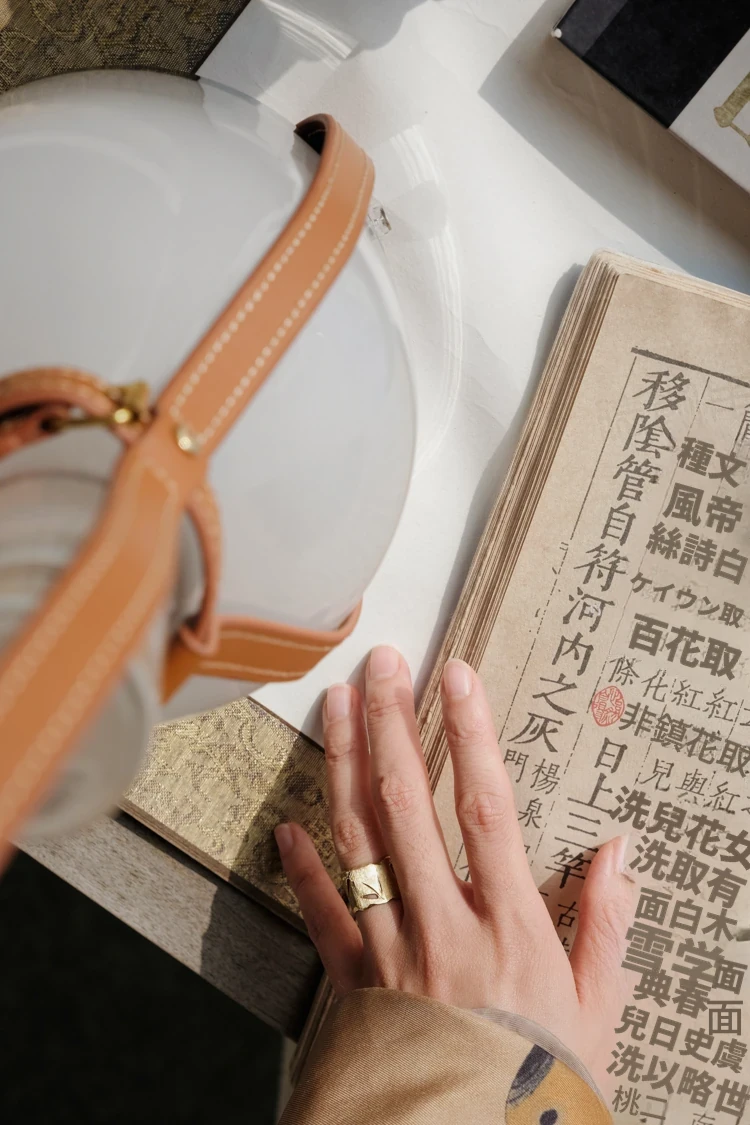 移陰管自符河内之灰
日上三竿
種文
風帝
絲詩白
ケイウン取
百花取
條化紅紅
非鎮花取
兒與紅
洗兒花女
洗取有
面白木
雪学面
典春面
兒日史虞
洗以略世
桃
楊泉
門
古